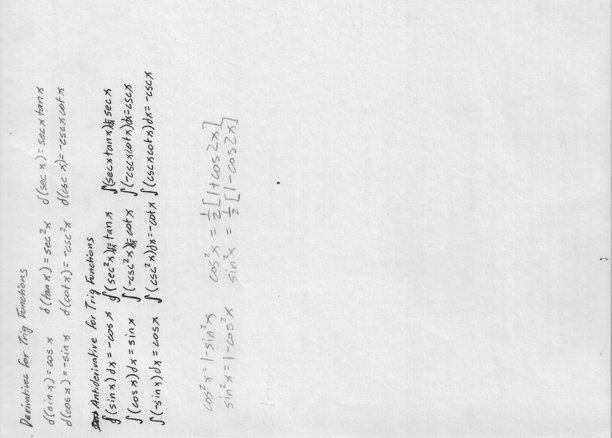 Derivatives for Trig Functions
d(sin x) = cos x d(tan x) = sec²x d(sec x) = sec x tan x
d(cos x) = -sin x d(cot x) = -csc²x d(csc x) = -csc x cot x
Antiderivative for Trig Functions
∫(sin x) dx = -cos x ∫(sec²x)dx = tan x ∫(sec x tan x)dx = sec x
∫(cos x) dx = sin x ∫(-csc²x)dx = cot x ∫(-csc x cot x)dx = csc x
∫(-sin x) dx = cos x ∫(csc²x)dx = -cot x ∫(csc x cot x)dx = -csc x
cos²x = 1-sin²x cos²x = 1/2 [1+cos 2x]
sin²x = 1-cos²x sin²x = 1/2 [1-cos 2x]